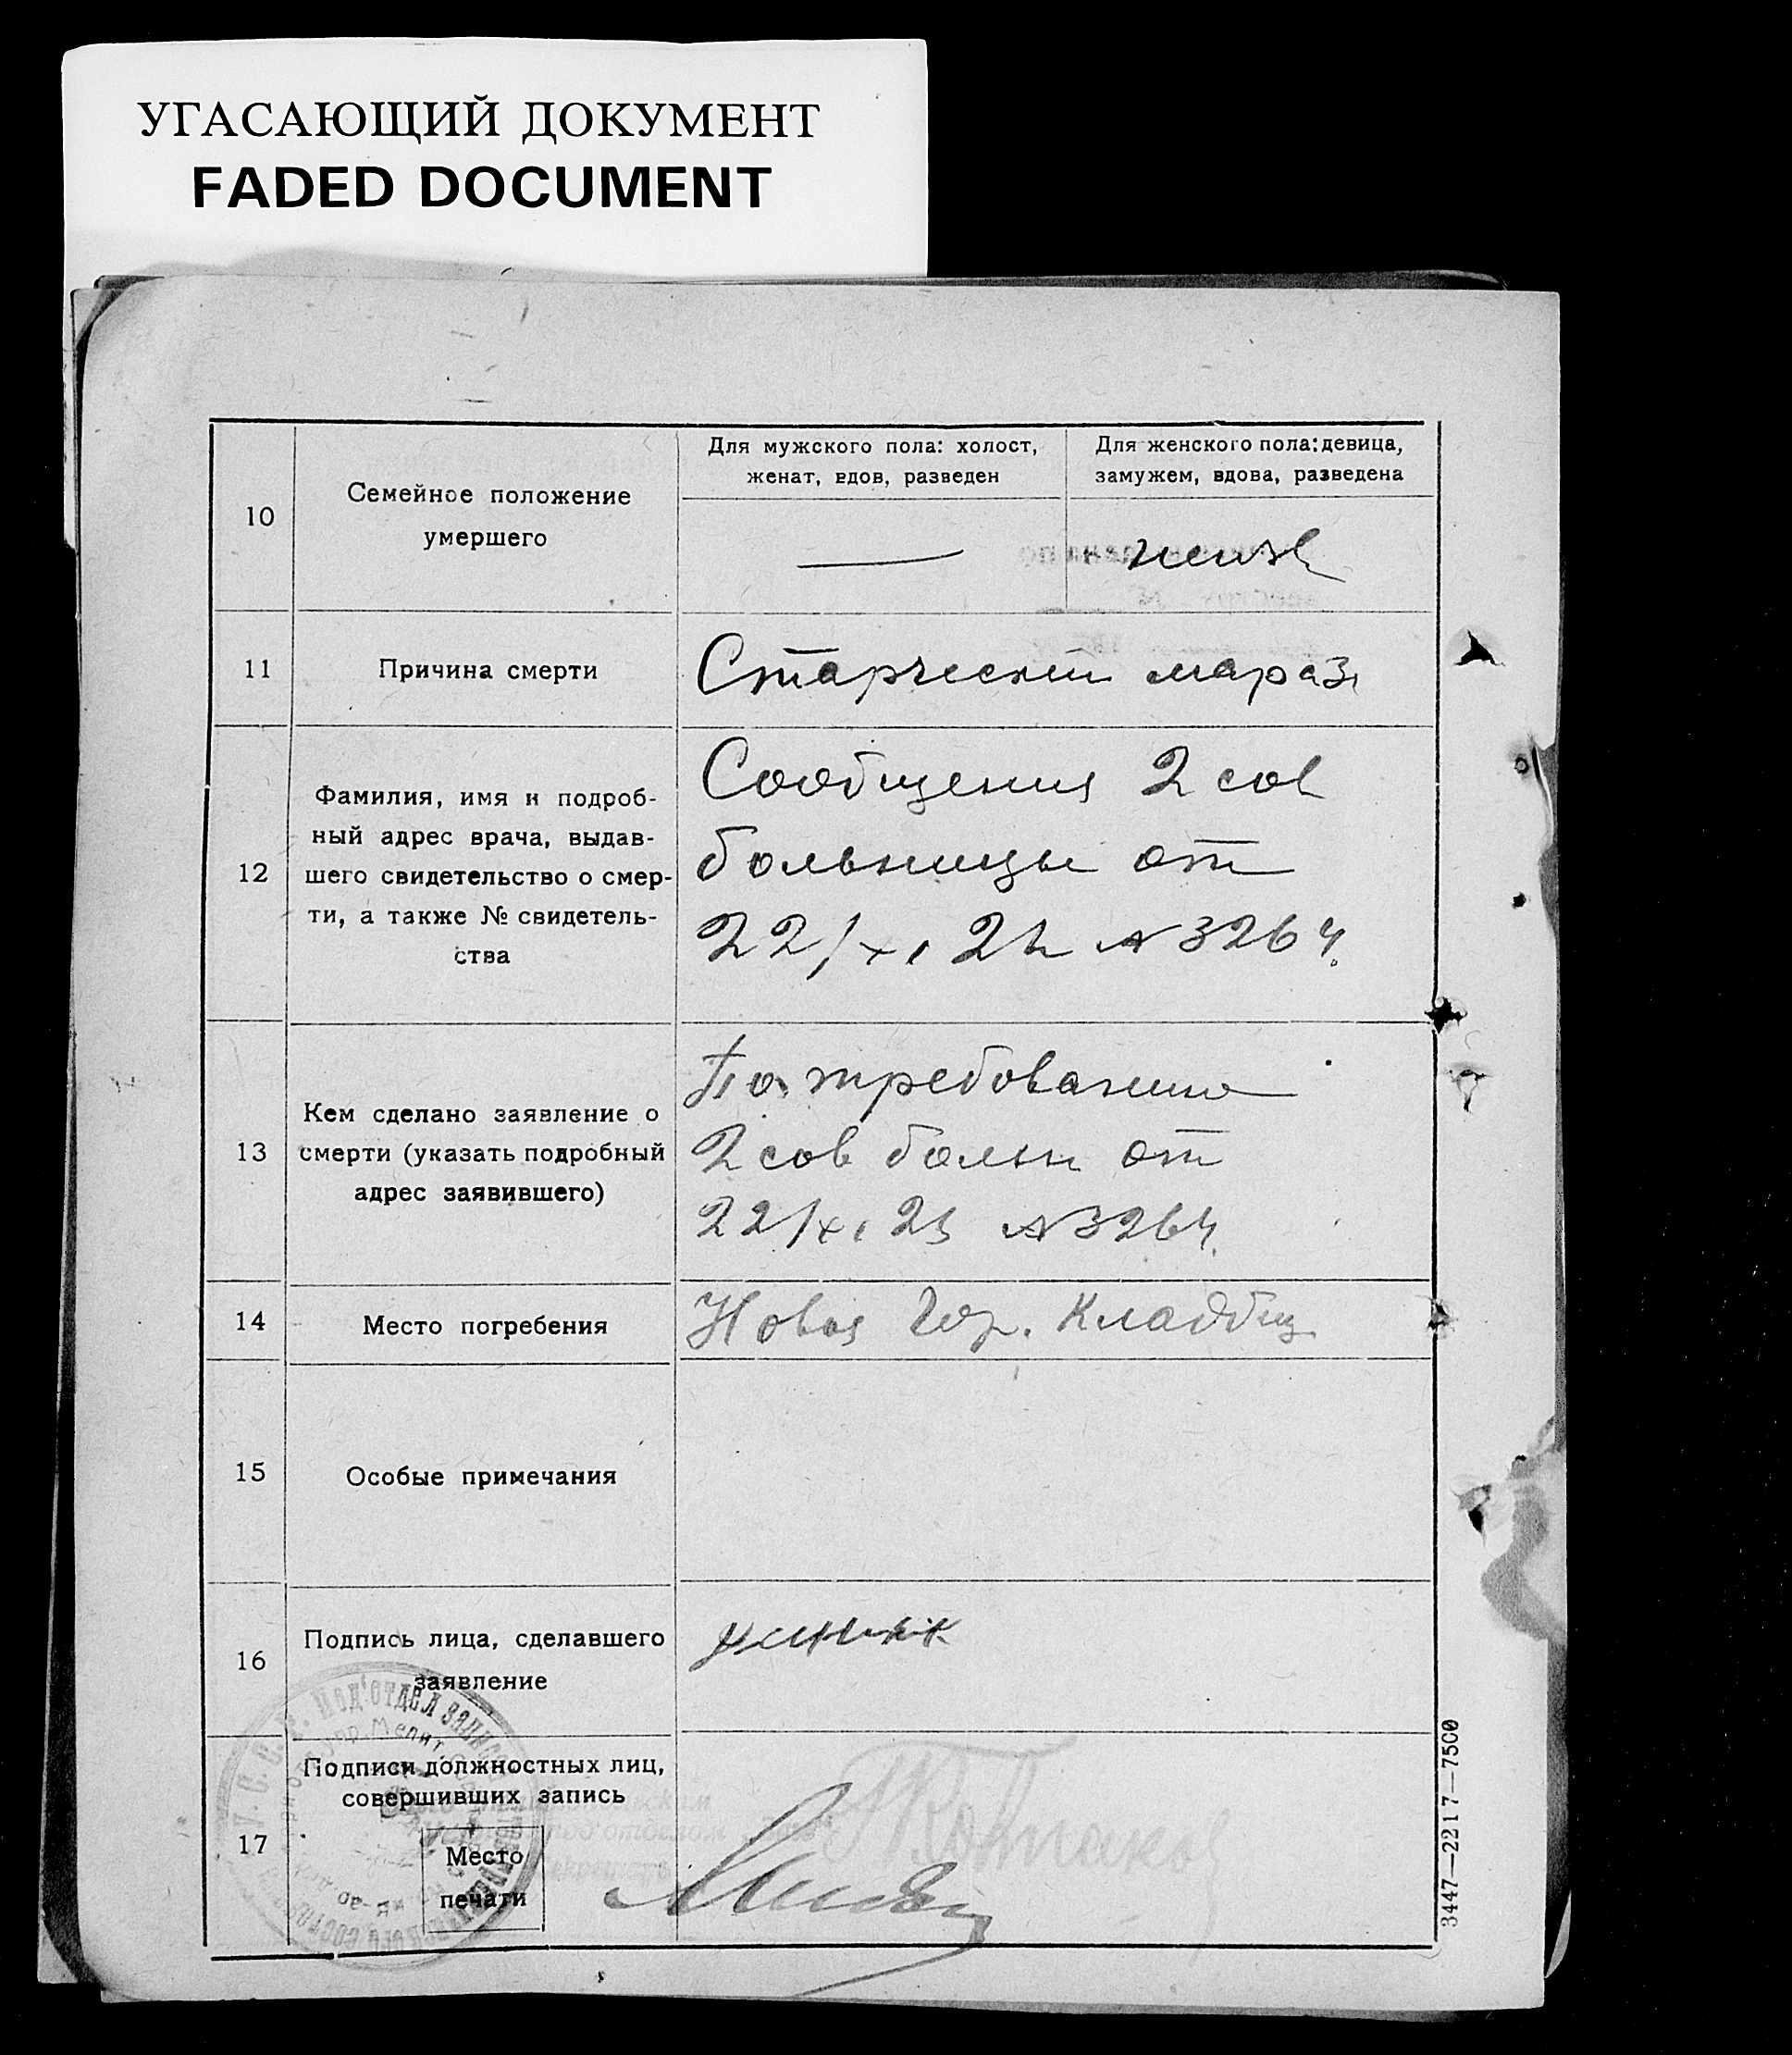 УГАСАЮЩИЙ ДОКУМЕНТ
FADED DOCUMENT
10
Семейное положение
умершего
Для мужского пола: холост,
женат, вдов, разведен
Для женского пола: девица,
замужем, вдова, разведена
—
неизв
11
Причина смерти
Старческий мараз
12
Фамилия, имя и подроб-
ный адрес врача, выдав-
шего свидетельство о смер-
ти, а также № свидетель-
ства
Сообщения 2 сов
больницы от
№ 3264
13
Кем сделано заявление о
смерти (указать подробный
адрес заявившего)
По требованию
2 сов больн от
22/XI 23 № 3264
14
Место погребения
Новое Гор. Кладбищ
15
Особые примечания
16
Подпись лица, сделавшего
заявление
17
Подписи должностных лиц,
совершивших запись
Место
печати
3447—2217—7500